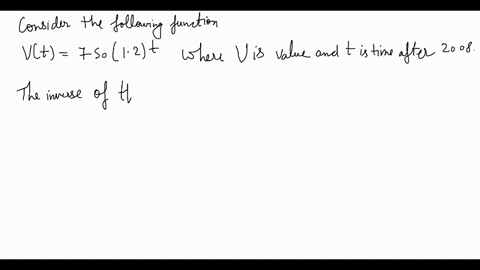 Consider the following function
V(t) = 750(1.2)^t where V is value and t is time after 2008.
The inverse of H